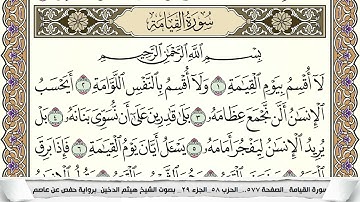 سُورَةُ القِيَامَةِ
بِسْمِ اللَّهِ الرَّحْمَٰنِ الرَّحِيمِ
لَا أُقْسِمُ بِيَوْمِ الْقِيَامَةِ ١ وَلَا أُقْسِمُ بِالنَّفْسِ اللَّوَّامَةِ ٢ أَيَحْسَبُ
الْإِنسَانُ أَلَّن نَّجْمَعَ عِظَامَهُ ٣ بَلَىٰ قَادِرِينَ عَلَىٰ أَن نُّسَوِّيَ بَنَانَهُ ٤ بَلْ
يُرِيدُ الْإِنسَانُ لِيَفْجُرَ أَمَامَهُ ٥ يَسْأَلُ أَيَّانَ يَوْمُ الْقِيَامَةِ ٦ فَإِذَا بَرِقَ
سورة القيامة _ الصفحة ٥٧٧ _ الحزب ٥٨ _ الجزء ٢٩ _ بصوت الشيخ هيثم الدخين _ برواية حفص عن عاصم